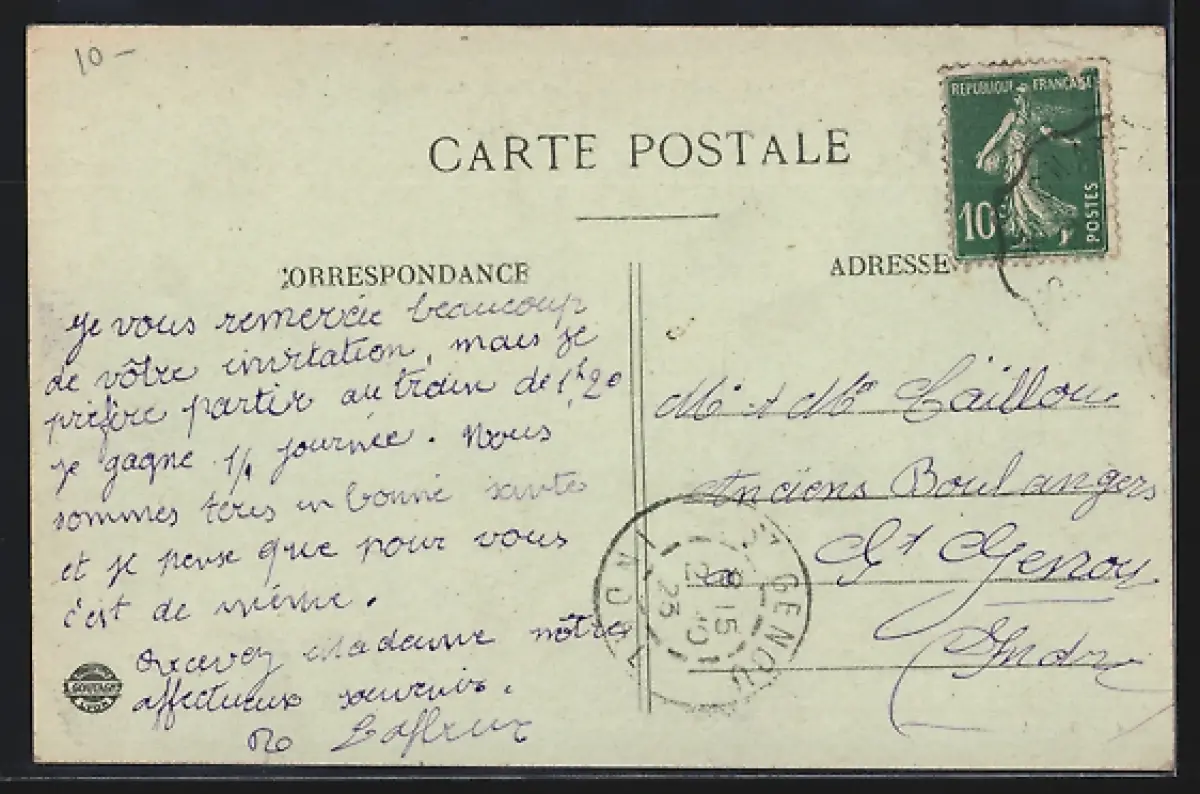 10 –
CARTE POSTALE
CORRESPONDANCE
ADRESSE
REPUBLIQUE FRANÇAISE
10c
POSTES
Je vous remercie beaucoup
de vôtre invitation, mais je
préfère partir au train de 1h,20
je gagne 1/2 journée. Nous
sommes tous en bonne santée
et je pense que pour vous
c'est de même.
Recevez Madame nôtre
affectueux souvenir.
Mr et Mme Caillou
Anciens Boulangers
St Genou
Indre
ST GENOU
INDRE
8 15
2 10
23
GOUTAGNY
LYON